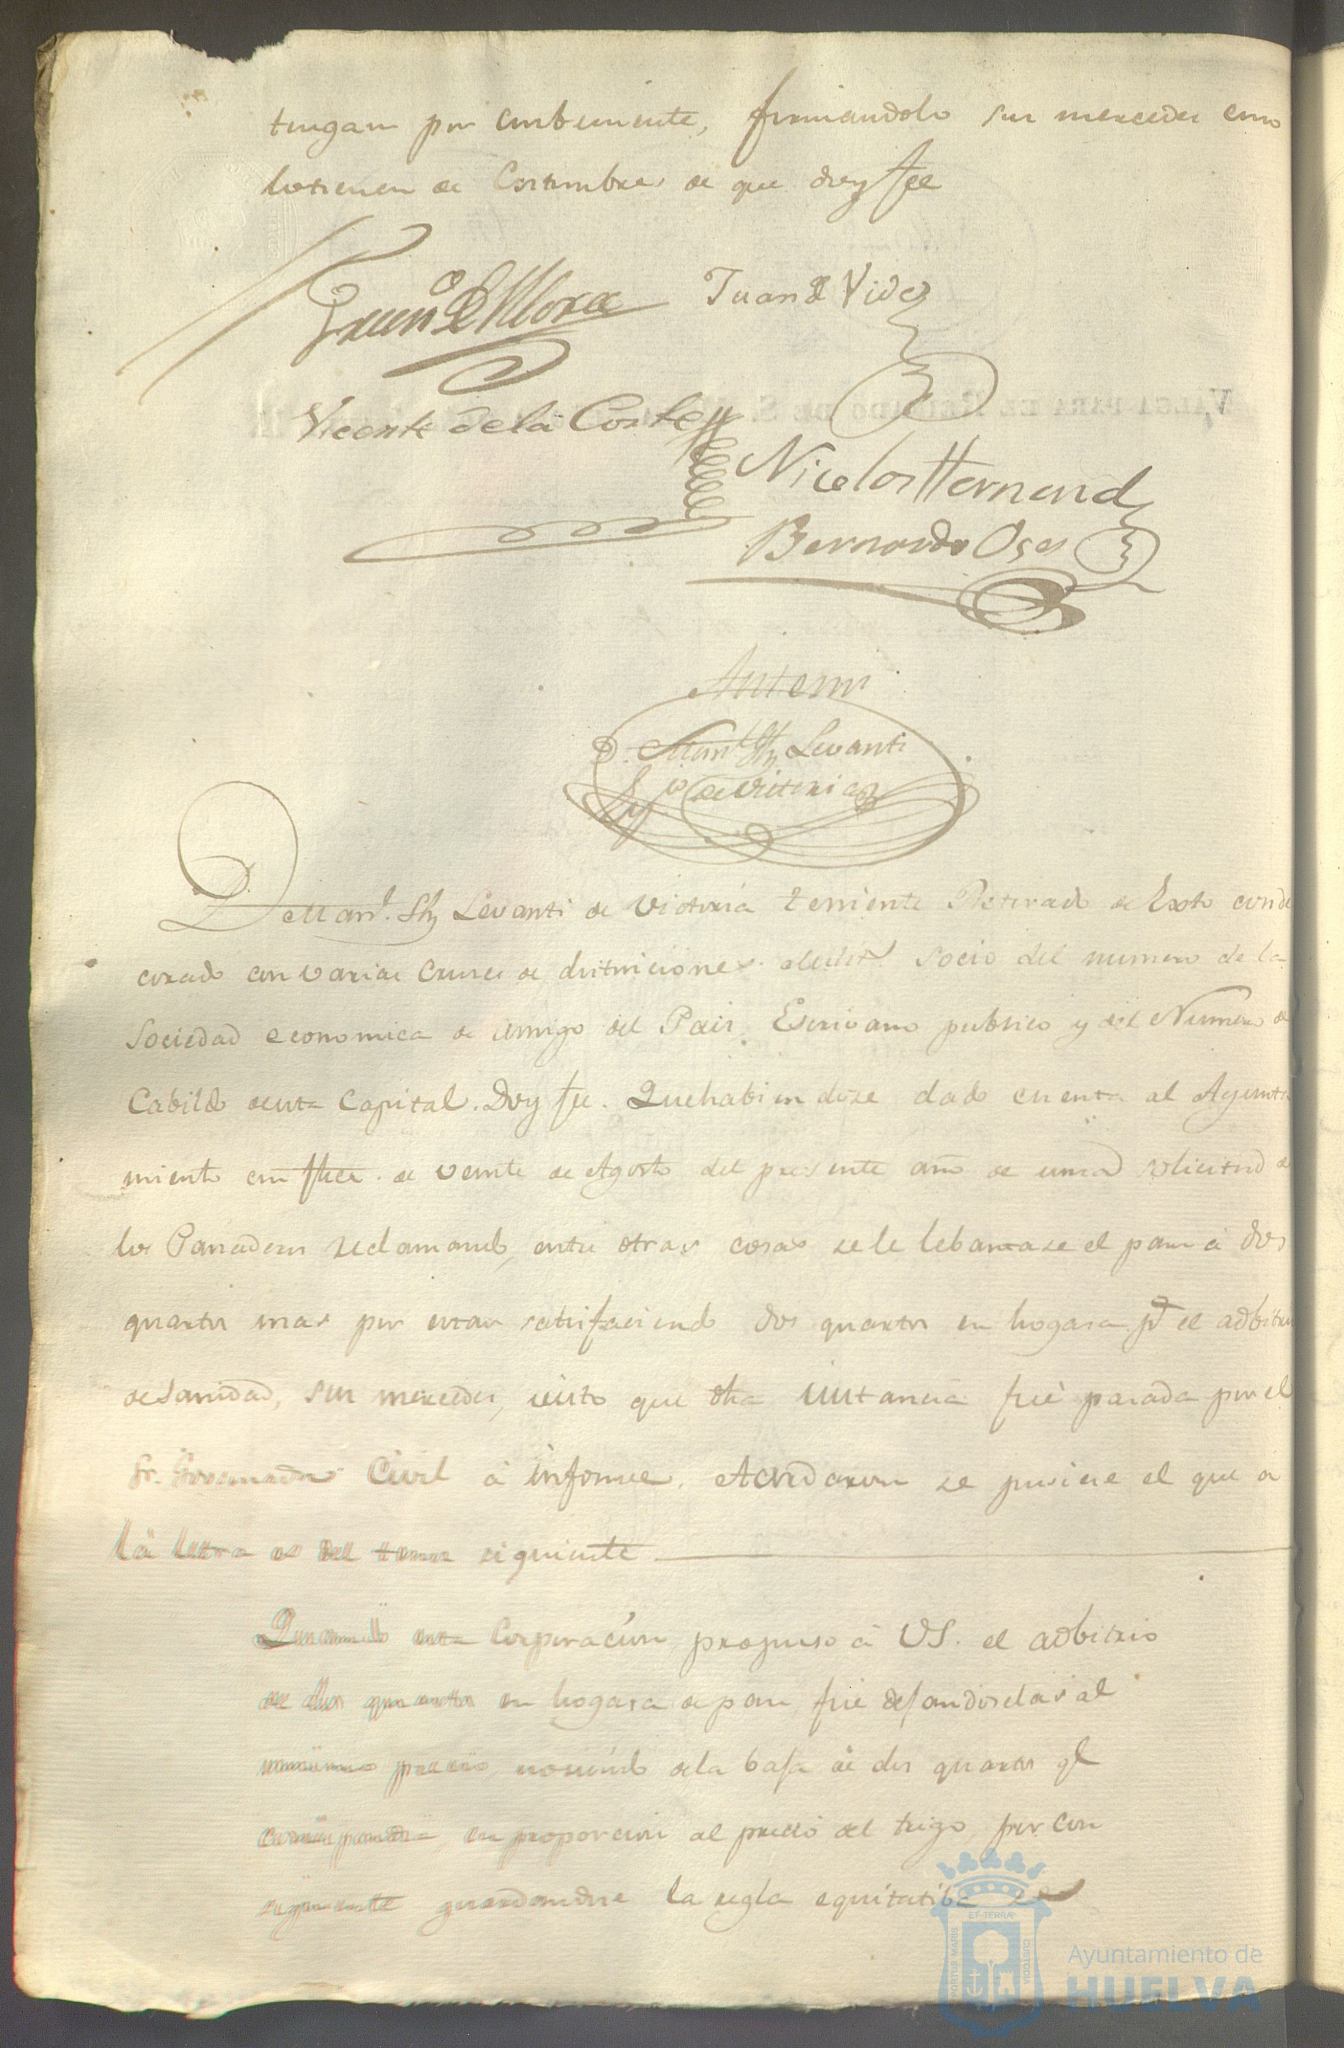 tengan por combeniente, firmandolo sus mercedes como
lo tienen de Costumbre de que doy fee
Juan de Vides
Vicente de la Corte
Nicolas Hernand
Bernardo Oses
Antemi
Man.l Sz Levanti
de Victoria
D Man.l Sz Levanti de Victoria teniente Retirado de Exto conde
corado con varias Cruces de distinciones socio del numero de la
Sociedad economica de amigo del Pais, Escrivano publico y del Numero de
Cabildo de esta Capital. Doy fee. Que habiendose dado cuenta al Ayunta
miento en de veinte de Agosto del presente año de una solicitud de
los Panaderos reclamando, entre otras cosas se le lebantase el pan à dos
quartos mas por estar satisfaciendo dos quartos en hogasa pa el adbitrio
de Sanidad, sus mercedes, visto que dha instancia fué pasada por el
Sr. Governador Civil à informe. Acordaron se pusiese el que a
la letra es del tenor siguiente
Quando esta Corporacion propuso à VS. el adbitrio
de dos quartos en hogasa de pan, fué dejandoselas al
mismo precio, de la baja de dos quartos ql
correspondia en proporcion al precio del trigo, por con
siguiente guardandose la regla equitatiba
VALGA PARA EL REINADO DE S.
PORTUS MARIS ET TERRÆ CUSTODIA
Ayuntamiento de
HUELVA